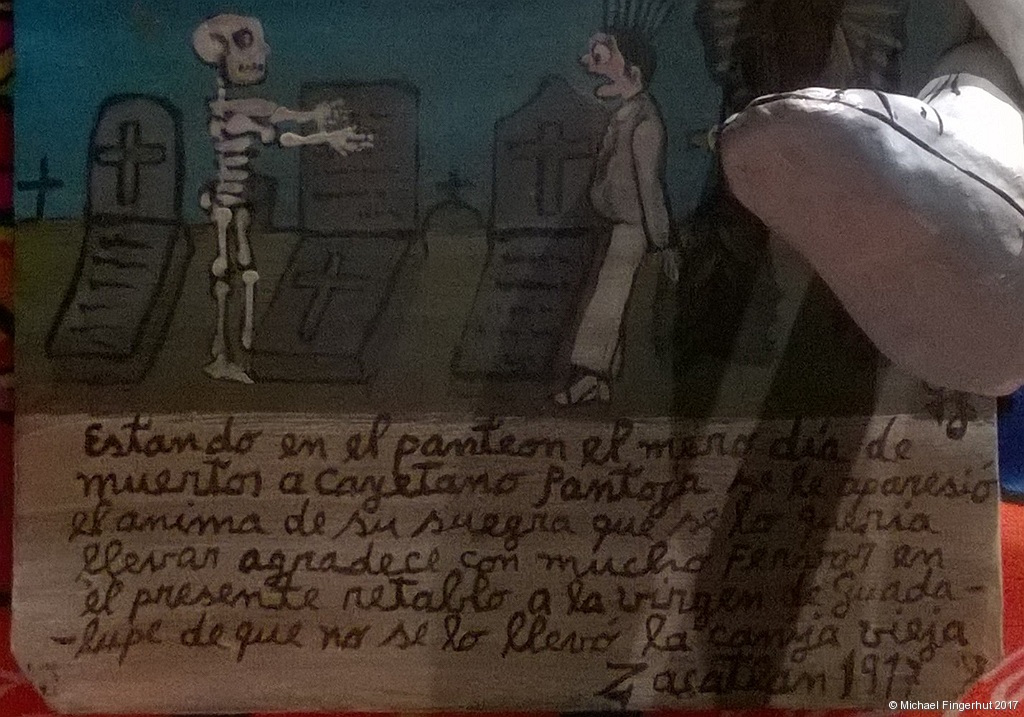 Estando en el panteon el mero día de
muertos a Cayetano Pantoja se le aparesió
el anima de su suegra que se lo quería
llevar agradece con mucho Fervor en
el presente retablo a la virgen de Guada-
-lupe de que no se lo llevó la canija vieja
Zacatlan
© Michael Fingerhut 2017